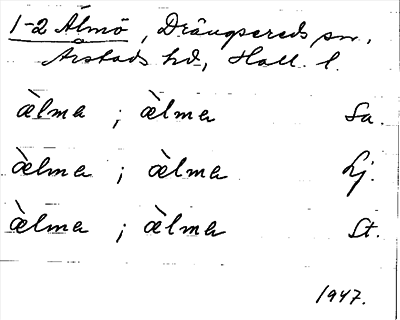 1-2 Älmö, Drängsereds sn.,
Årstads hd, Hall. l.
àelma ; àelma Sa.
àelma ; àelma Lj.
àelma ; àelma St.
1947.